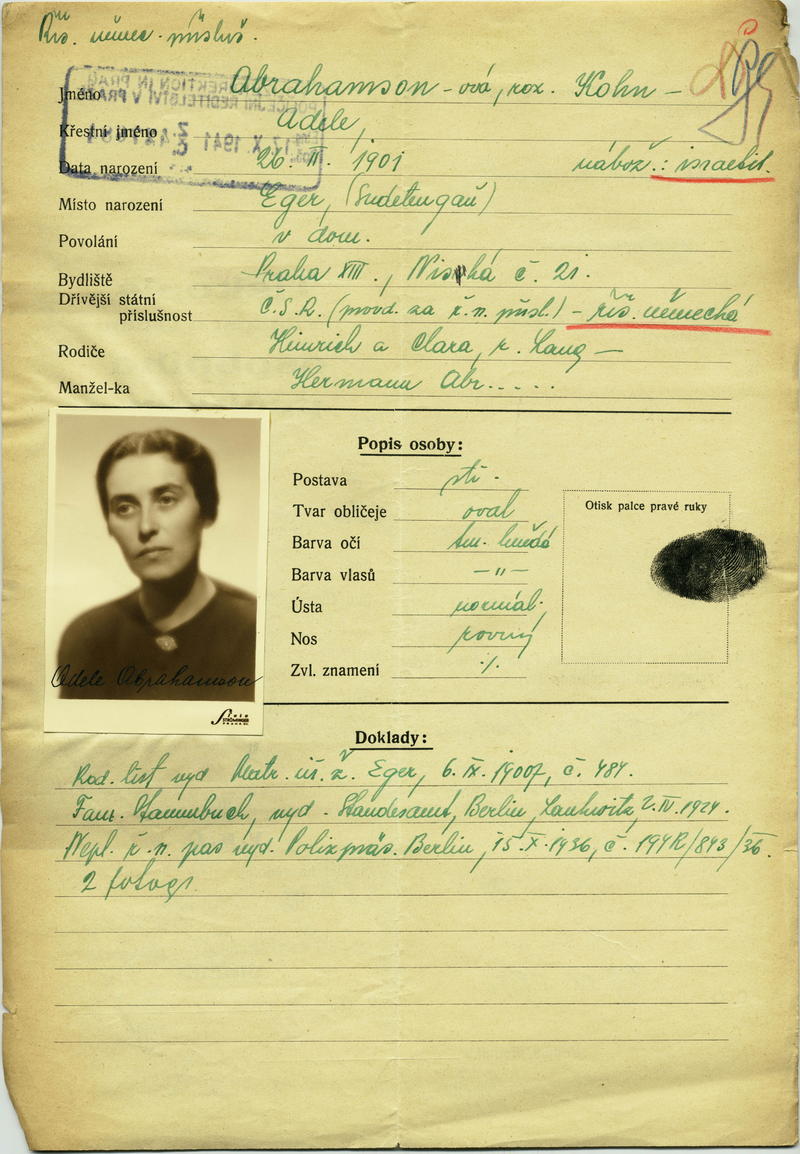 Říš. němec. přísluš.
Jméno Abrahamson - ová, roz. Kohn -
Křestní jméno Adele,
Data narození 26. II. 1901 nábož.: israelit.
Místo narození Eger, (Sudetengau)
Povolání v dom.
Bydliště Praha XIII., č. 21.
Dřívější státní
příslušnost Č.S.R. (provd. za ř.n. přísl.) - říš. německá
Rodiče Heinrich a Clara, r. Lang -
Manžel-ka Hermann Abr.....
Popis osoby:
Postava stř.
Tvar obličeje oval
Otisk palce pravé ruky
Barva očí tm. hnědá
Barva vlasů - " -
Ústa normál.
Nos rovný
Zvl. znamení ./.
Adele Abrahamson
Foto
Doklady:
Rod. list vyd Matr. úř. ž. Eger, 6. IX. 1907, č. 484.
Fam. Stammbuch, vyd. Standesamt, Berlin, Lankwitz, 2. IV. 1924.
Nepl. ř. n. pas vyd. Polizpräs. Berlin, 15. X. 1936, č. 194R/843/36.
2 fotogr.